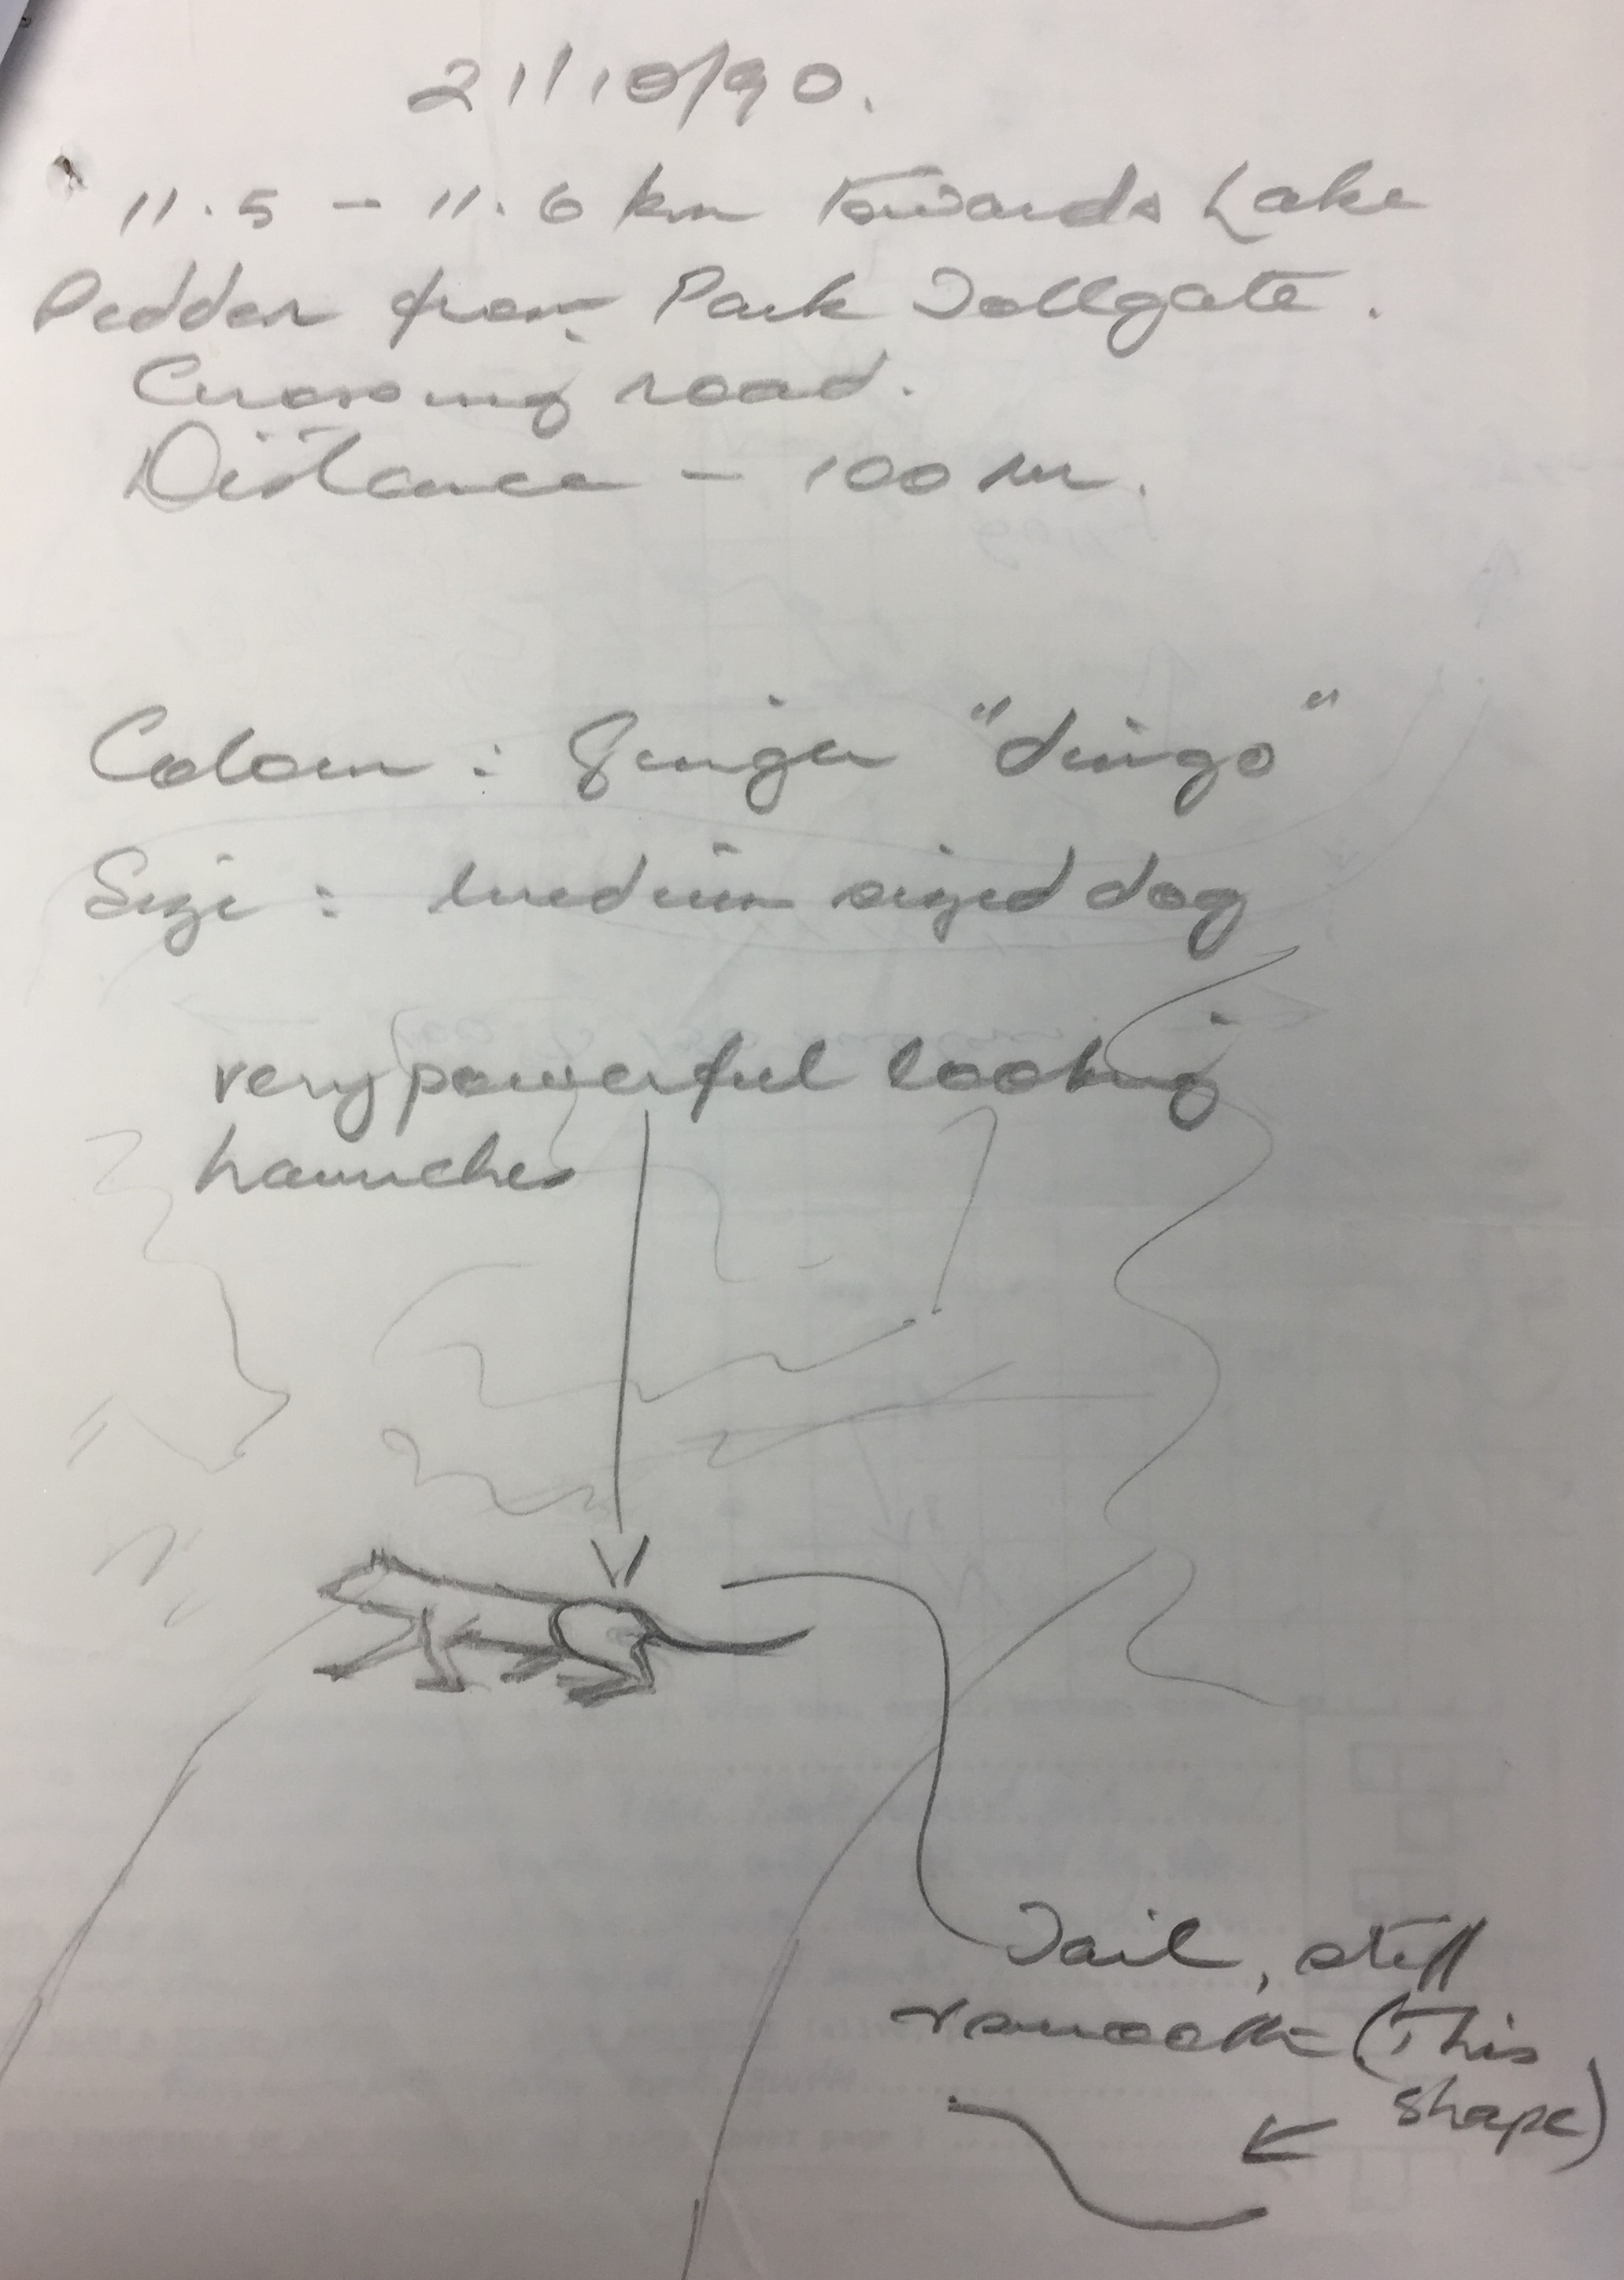 21/10/90.
11.5 - 11.6 km Towards Lake
Pedder from Park Tollgate.
Crossing road.
Distance - 100 m.
Colour : Ginger "dingo"
Size : medium sized dog
very powerful looking
haunches
Tail, stiff
& smooth (This
shape)